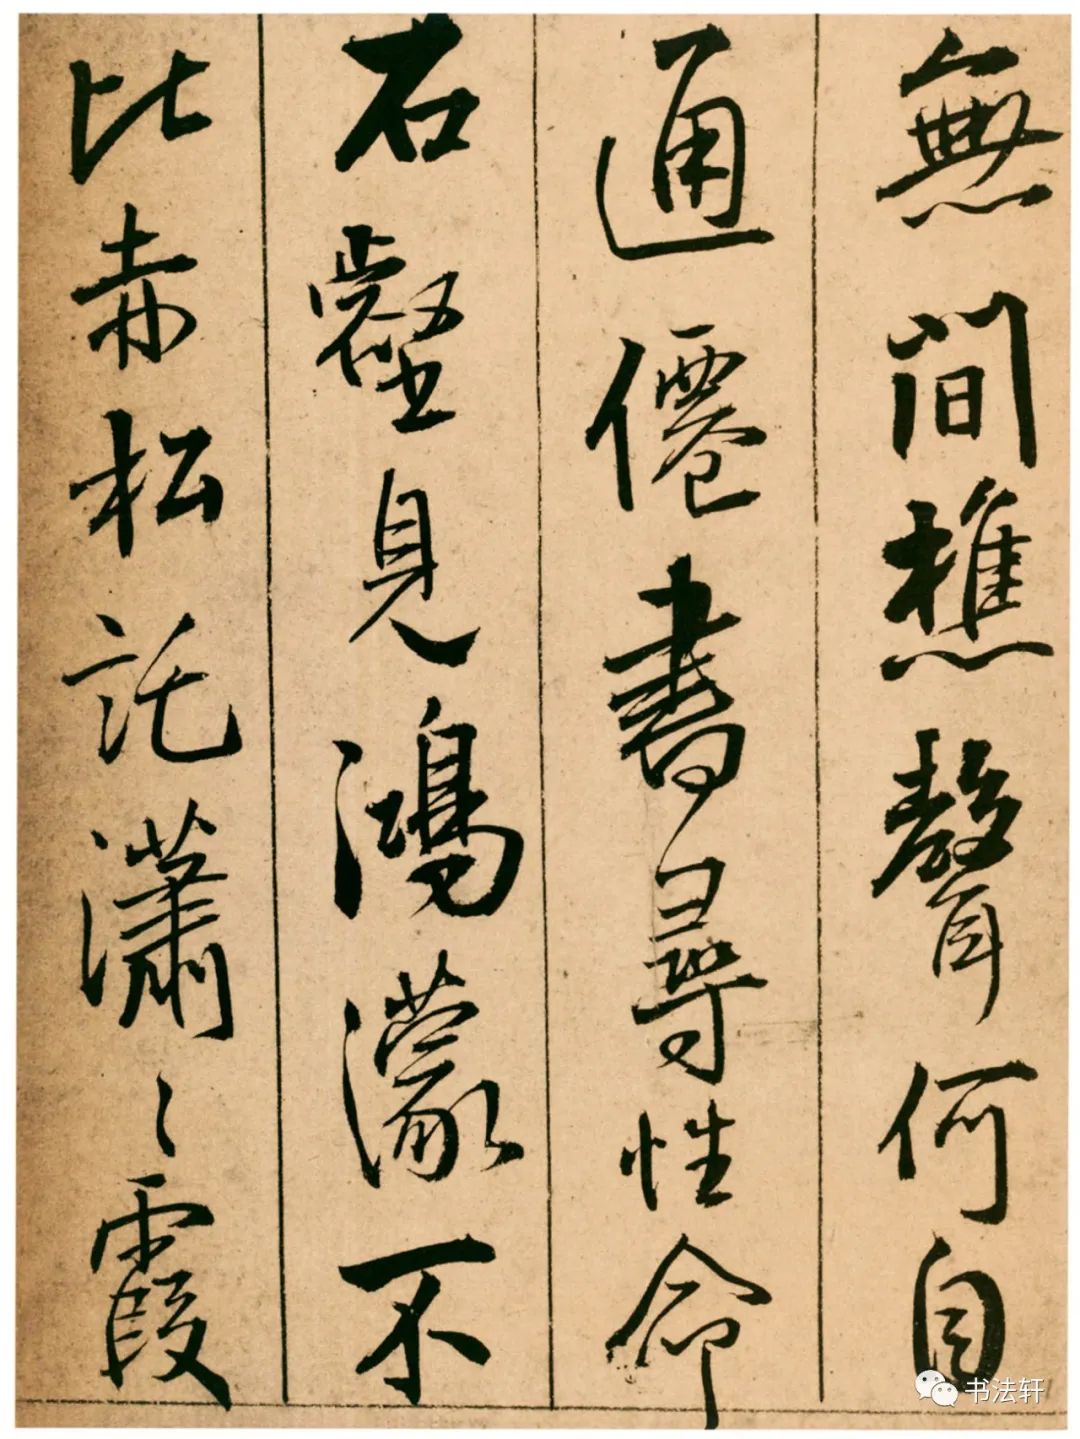 無間樵聲何自
通僊書尋性命
石壑見鴻濛不
比赤松託瀟〻霞
书法轩